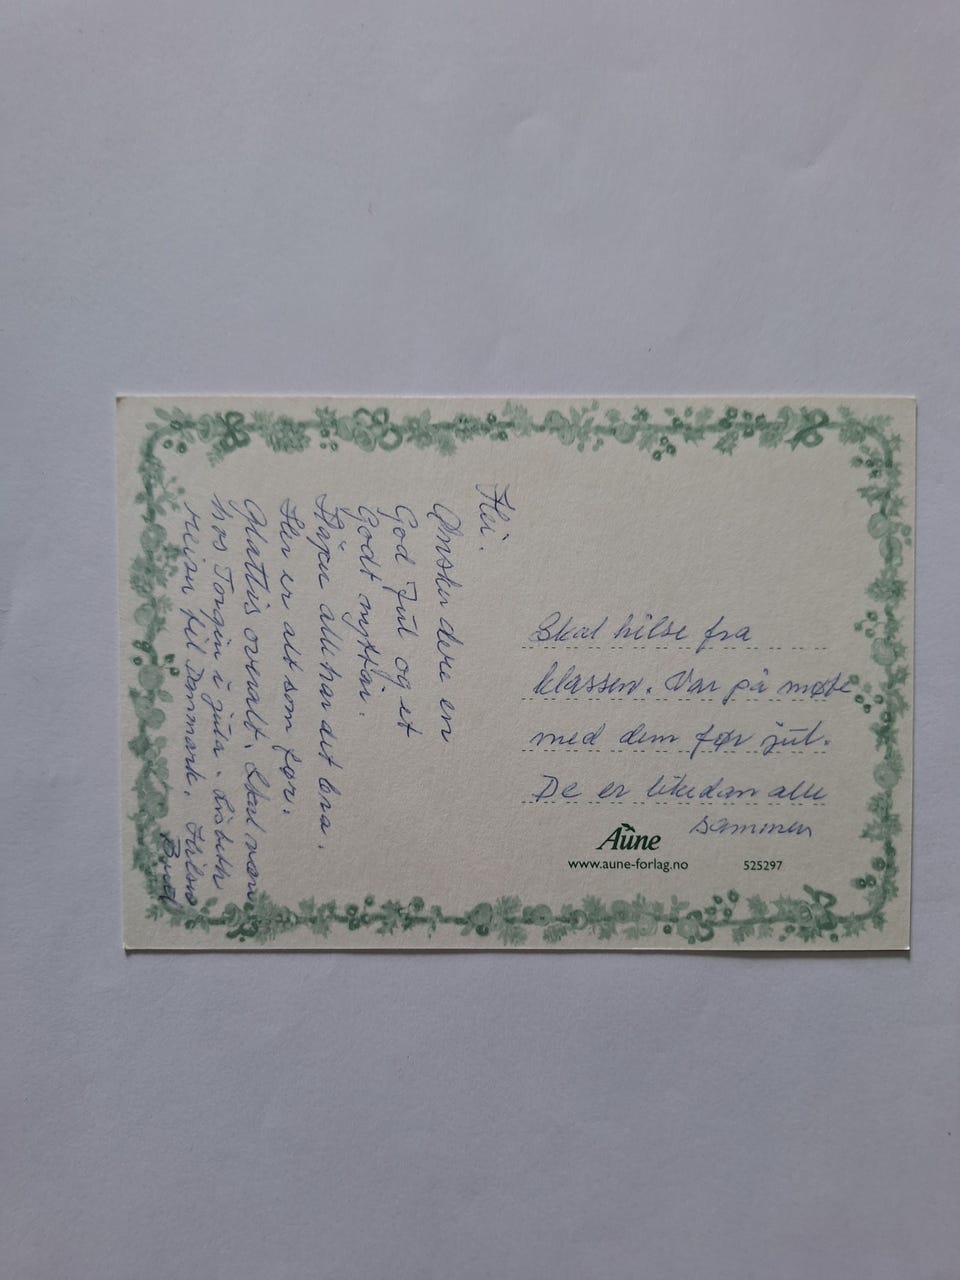 Hei.
Ønsker dere en
God Jul og et
Godt nyttår.
Håper alle har det bra.
Her er alt som før.
Glattis overalt. Skal være
hos Torgim i jula. Lisbeth
reiser til Danmark. Hilsen
Berit
Skal hilse fra
klassen. Var på møte
med dem før jul.
De er likedan alle
sammen
Aune
www.aune-forlag.no 525297